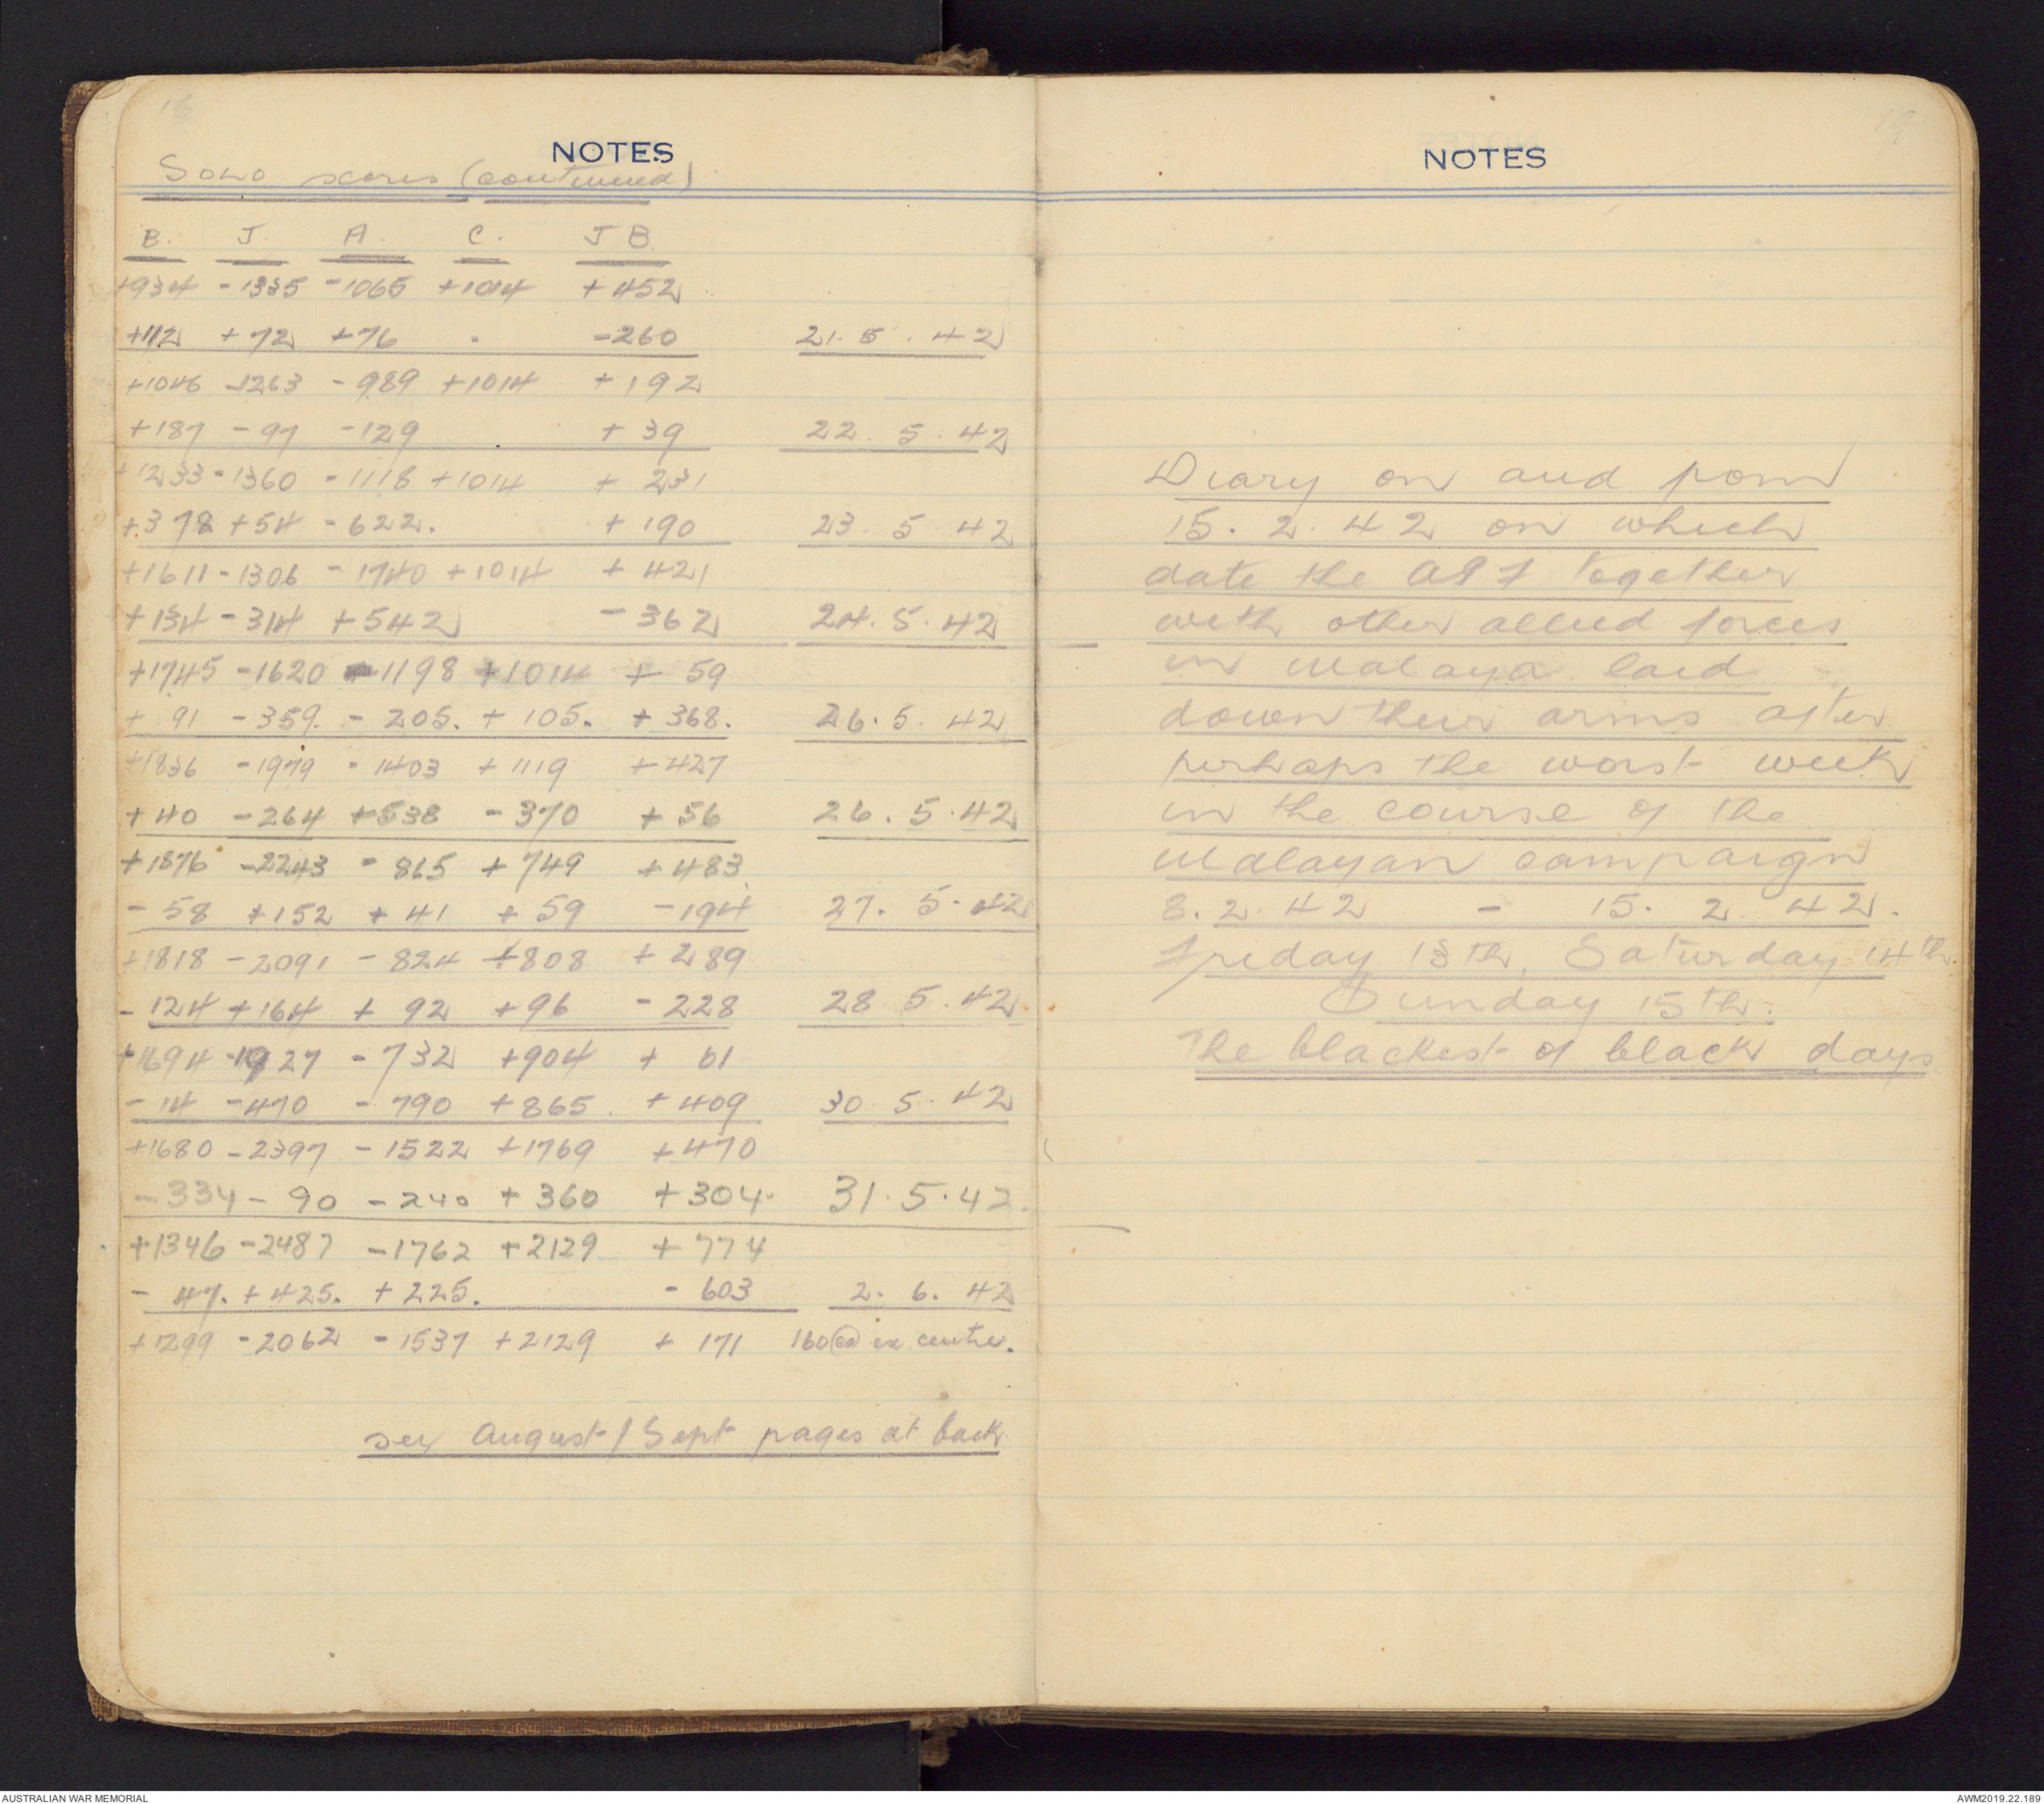 NOTES
Solo scores (continued)
B. J. A. C. J B
+934 -1335 -1065 +1014 +452
+112 +72 +76 - -260 21.5.42
+1046 -1263 -989 +1014 +192
+187 -97 -129 +39 22.5.42
+1233 -1360 -1118 +1014 +231
+378 +54 -622. +190 23.5.42
+1611 -1306 -1740 +1014 +421
+134 -314 +542 -362 24.5.42
+1745 -1620 -1198 +1014 +59
+91 -359. -205. +105. +368. 26.5.42
+1836 -1979 -1403 +1119 +427
+40 -264 +538 -370 +56 26.5.42
+1876 -2243 -865 +749 +483
-58 +152 +41 +59 -194 27.5.42
+1818 -2091 -824 +808 +289
-124 +164 +92 +96 -228 28 5.42
+1694 -1927 -732 +904 +61
-14 -470 -790 +865 +409 30 5.42
+1680 -2397 -1522 +1769 +470
-334 -90 -240 +360 +304. 31.5.42.
+1346 -2487 -1762 +2129 +774
-47. +425. +225. -603 2.6.42
+1299 -2062 -1537 +2129 +171 160 @ ex centre.
see August/Sept pages at back
NOTES
Diary on and from
15.2.42 on which
date the AIF together
with other allied forces
in Malaya laid
down their arms after
perhaps the worst week
in the course of the
Malayan campaign
8.2.42 - 15.2.42.
Friday 13th, Saturday 14th.
Sunday 15th.
The blackest of black days
AUSTRALIAN WAR MEMORIAL
AWM2019.22.188